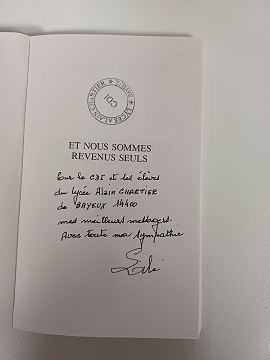 LYCEE ALAIN CHARTIER
BAYEUX
CDI
ET NOUS SOMMES
REVENUS SEULS
Pour le CDI et les élèves
du lycée Alain CHARTIER
de BAYEUX 14400
mes meilleurs messages.
Avec toute ma sympathie